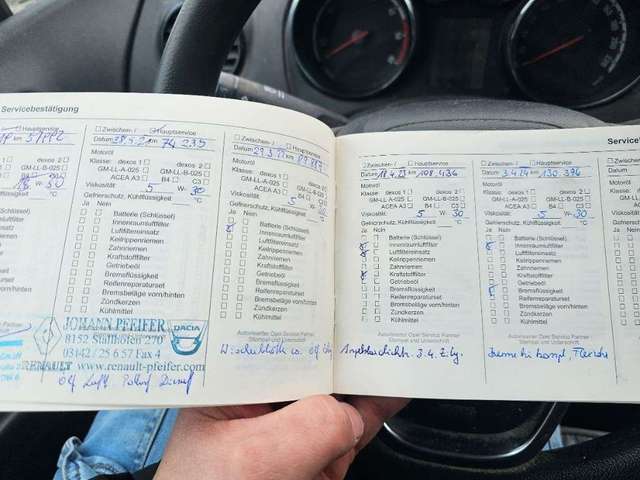 Servicebestätigung
Hauptservice
km 57992
dexos 2
GM-LL-B-025
C3
W- 30
°C
(Schlüssel)
Zwischen- / Hauptservice
Datum 28.5.2 km 74 235
Motoröl
Klasse: dexos 1 dexos 2
GM-LL-A-025 GM-LL-B-025
ACEA A3 B4 C3
Viskosität: 5 W- 30
Gefrierschutz, Kühlflüssigkeit °C
Ja Nein
Batterie (Schlüssel)
Innenraumluftfilter
Luftfiltereinsatz
Keilrippenriemen
Zahnriemen
Kraftstofffilter
Getriebeöl
Bremsflüssigkeit
Reifenreparaturset
Bremsbeläge vorn/hinten
Zündkerzen
Kühlmittel
JOHANN PFEIFER
8152 Stallhofen 270
03142 / 25 6 57 Fax 4
www.renault-pfeifer.com
RENAULT
DACIA
Öl, Luft, Poll
Zwischen- / Hauptservice
Datum 29.5.22 km
Motoröl
Klasse: dexos 1 dexos 2
GM-LL-A-025 GM-LL-B-025
ACEA A3 B4 C3
Viskosität: 5 W- 30
Gefrierschutz, Kühlflüssigkeit °C
Ja Nein
Batterie (Schlüssel)
Innenraumluftfilter
Luftfiltereinsatz
Keilrippenriemen
Zahnriemen
Kraftstofffilter
Getriebeöl
Bremsflüssigkeit
Reifenreparaturset
Bremsbeläge vorn/hinten
Zündkerzen
Kühlmittel
Autorisierter Opel Service Partner
Stempel und Unterschrift
Service
Zwischen- / Hauptservice
Datum 18.4.23 km 108.436
Motoröl
Klasse: dexos 1 dexos 2
GM-LL-A-025 GM-LL-B-025
ACEA A3 B4 C3
Viskosität: 5 W- 30
Gefrierschutz, Kühlflüssigkeit °C
Ja Nein
Batterie (Schlüssel)
Innenraumluftfilter
Luftfiltereinsatz
Keilrippenriemen
Zahnriemen
Kraftstofffilter
Getriebeöl
Bremsflüssigkeit
Reifenreparaturset
Bremsbeläge vorn/hinten
Zündkerzen
Kühlmittel
Autorisierter Opel Service Partner
Stempel und Unterschrift
3.4. Zyl.
Zwischen- / Hauptservice
Datum 3.4.24 km 130 396
Motoröl
Klasse: dexos 1 dexos 2
GM-LL-A-025 GM-LL-B-025
ACEA A3 B4 C3
Viskosität: 5 W- 30
Gefrierschutz, Kühlflüssigkeit °C
Ja Nein
Batterie (Schlüssel)
Innenraumluftfilter
Luftfiltereinsatz
Keilrippenriemen
Zahnriemen
Kraftstofffilter
Getriebeöl
Bremsflüssigkeit
Reifenreparaturset
Bremsbeläge vorn/hinten
Zündkerzen
Kühlmittel
Autorisierter Opel Service Partner
Stempel und Unterschrift